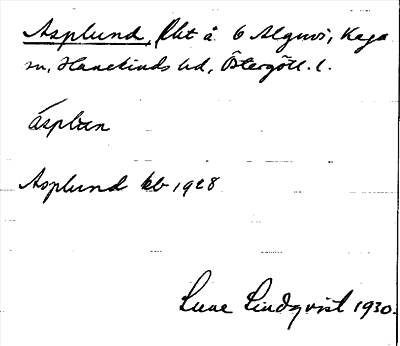 Asplund, lht å 6 Algurvi, Kaga
sn, Hanekinds hd, Östergötl. l.
áspl
Asplund kb 1928
Sune Lindqvist 1930.